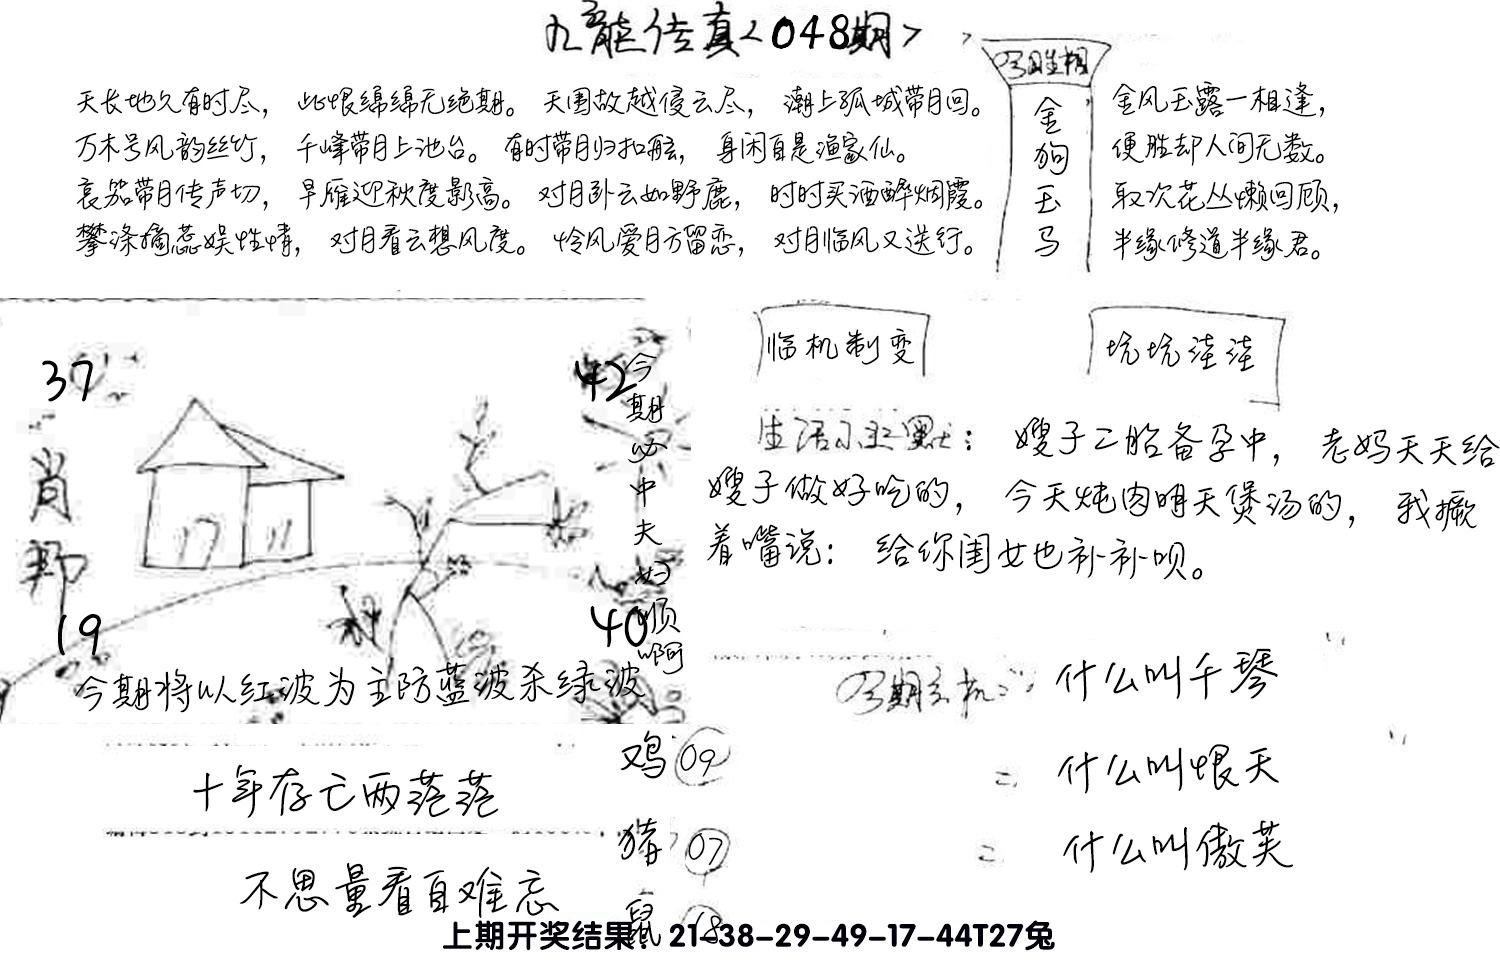 九龍传真<048期>
天长地久有时尽，此恨绵绵无绝期。天围故越侵云尽，潮上孤城带月回。
万木号风韵丝竹，千峰带月上池台。有时带月归扣舷，身闲自是渔家仙。
哀笳带月传声切，早雁迎秋度影高。对月卧云如野鹿，时时买酒醉烟霞。
攀涤摘蕊娱性情，对月看云想风度。怜风爱月方留恋，对月临风又送行。
金
狗
玉
马
金风玉露一相逢，
便胜却人间无数。
取次花丛懒回顾，
半缘修道半缘君。
37
42
肖
19
40
今期必中夫妇顺啊
今期将以红波为主防蓝波杀绿波
临机制变
坑坑洼洼
生活小幽默：嫂子二胎备孕中，老妈天天给
嫂子做好吃的，今天炖肉明天煲汤的，我撅
着嘴说：给你闺女也补补呗。
什么叫千琴
什么叫恨天
什么叫傲芙
鸡 09
猪 07
鼠 18
十年存亡两茫茫
不思量看自难忘
上期开奖结果：21-38-29-49-17-44T27兔